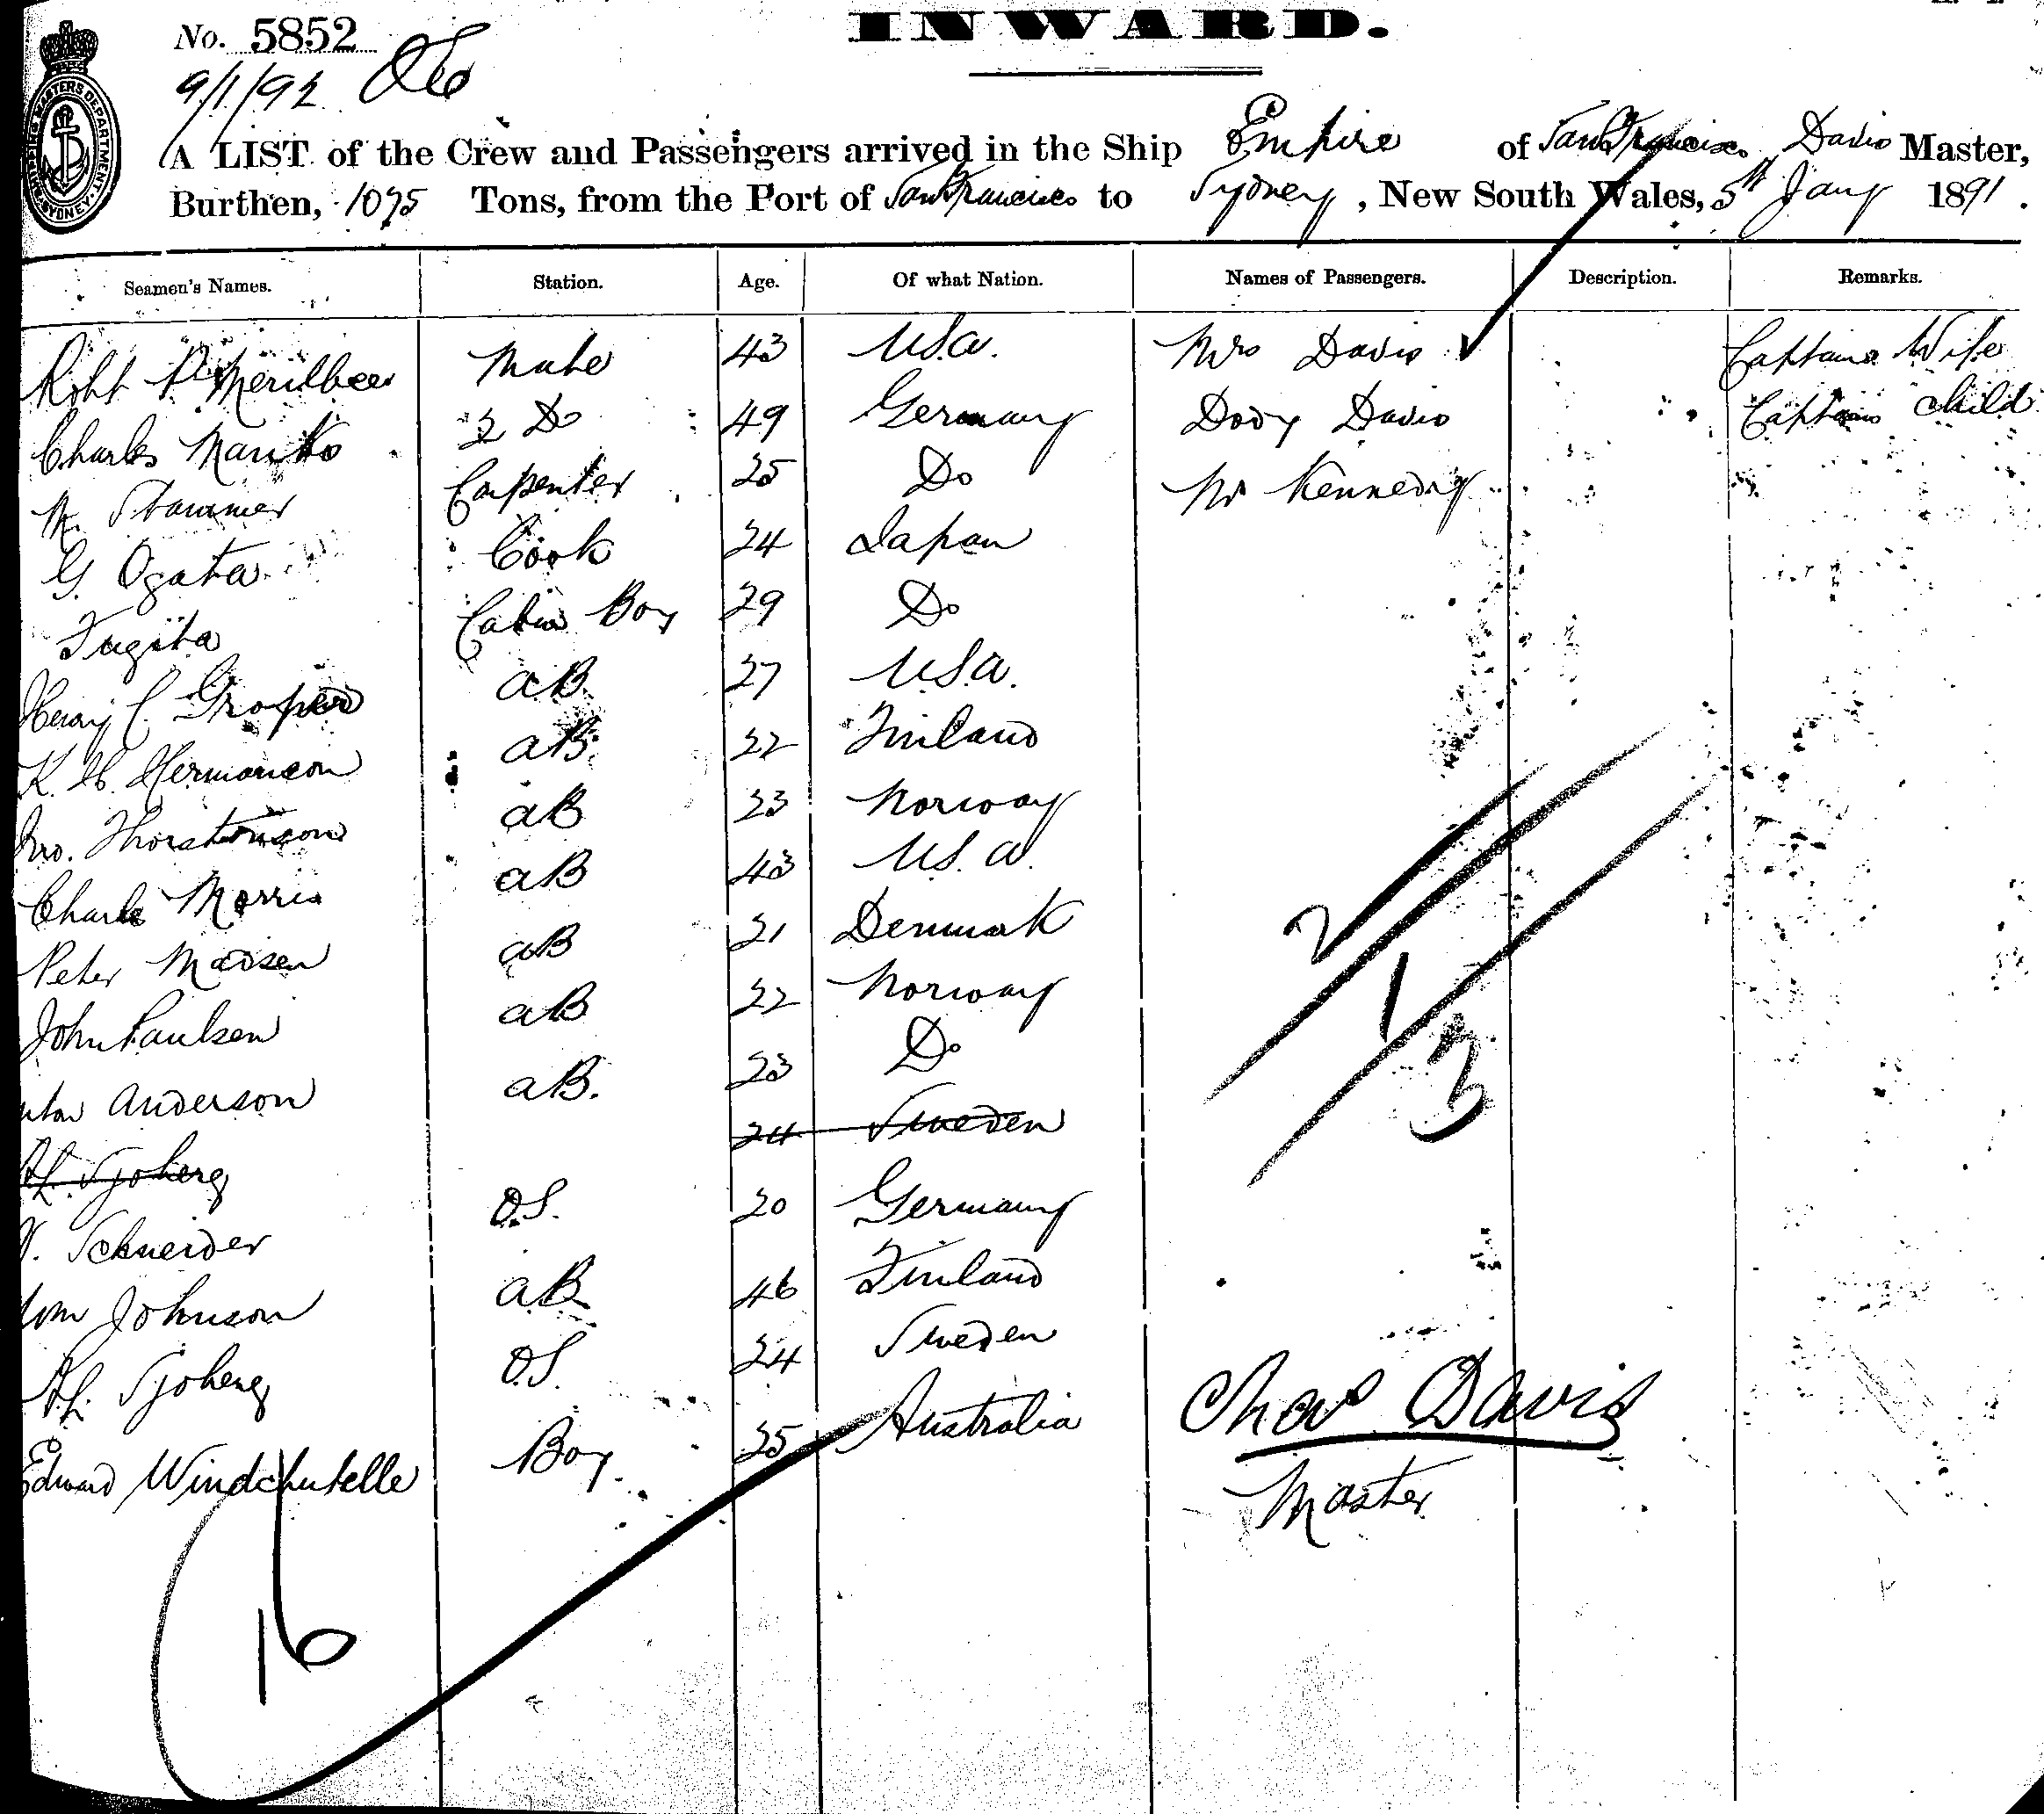 INWARD.
No. 5852
9/1/92
SHIPPING MASTERS DEPARTMENT SYDNEY
A LIST of the Crew and Passengers arrived in the Ship Empire of San Francisco, Davis Master,
Burthen, 1095 Tons, from the Port of San Francisco to Sydney, New South Wales, 5th Jany 1891.
Seamen's Names. Station. Age. Of what Nation. Names of Passengers. Description. Remarks.
Robt Mate 43 U.S.A. Mrs Davis Captains Wife
Charles 2 Do 49 Germany Dody Davis Captains Child
Stammer Carpenter 25 Do Mr Kennedy
G. Ogata Cook 24 Japan
Fugita Cabin Boy 29 Do
Henry C. AB 27 U.S.A.
K. H. Hermanson AB. 22 Finland
Jno. Thorstenson AB 23 Norway
Charles Morris AB 43 U.S.A.
Peter Madsen AB 21 Denmark
John Paulsen AB 22 Norway
Anderson AB. 23 Do
Sjoberg 24 Sweden
Schneider O.S. 20 Germany
Johnson AB 46 Finland
Sjoberg O.S. 24 Sweden
Edward Windchutelle Boy 25 Australia
2
1
3
Chas Davis
Master
16